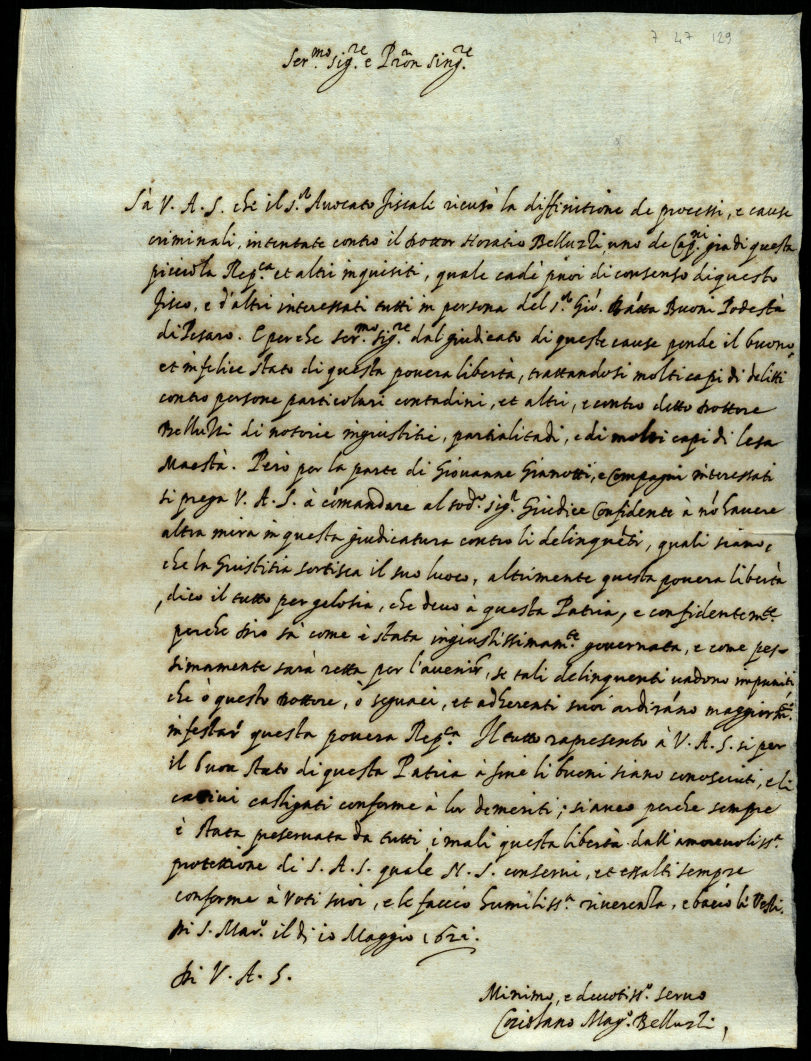 7 47 129
Ser.mo Sig.re e Pron Sing.re
Sà V. A. S. che il s.r Avocato fiscali ricusò la diffinitione de processi, e cause
criminali, intentate contro il Dottor Horatio Belluzzi, uno de Cap.ni già di questa
piccola Rep.ca et altri inquisiti, quale cadè puoi di consenso di questo
fisco, e d'altri interessati tutti in persona del s.r Gio. Batta Buoni Podestà
di Pesaro. E perche ser.mo sig.re dal giudicato di queste cause pende il buono,
et infelice stato di questa povera libertà, trattandosi molti capi di delitti
contro persone particolari contadini, et altri, e contro detto Dottore
Belluzzi di notorie ingiustitie, partialitadi, e di molti capi di lesa
Maestà. Però per la parte di Giovanne Gianotti, e Compagni interessati
si prega V. A. S. à comandare al sod.o sig.r Giudice Confidente à nó havere
altra mira in questa giudicatura contro li delinquéti, quali siano,
che la Giustitia sortisca il suo luoco, altrimente questa povera libertà
, dico il tutto per gelosia, che devo à questa Patria, e confidentem.te
perche Dio sà come è stata ingiustissimam.te governata, e come pes-
simamente sarà retta per l'avenir, se tali delinquenti vadono impuniti
che ò questo Dottore, ò seguaci, et adherenti suoi ardiráno maggiorm.te
infestar questa povera Rep.ca Il tutto rapresento à V. A. S. si per
il buon stato di questa Patria à fine li buoni siano conosciuti, e li
cativi castigati conforme à lor demeriti; si anco perche sempre
è stata preservata da tutti i mali questa libertà dall'amorevoliss.a
protettione di S. A. S. quale N. S. conservi, et essalti sempre
conforme à voti suoi, e le faccio humiliss.a riverenza, e bacio li Vesti.
Di S. Mar.o il dì 10 Maggio 1621.
Di V. A. S.
Minimo, e devotiss.o servo
Coriolano Mag.o Belluzzi,